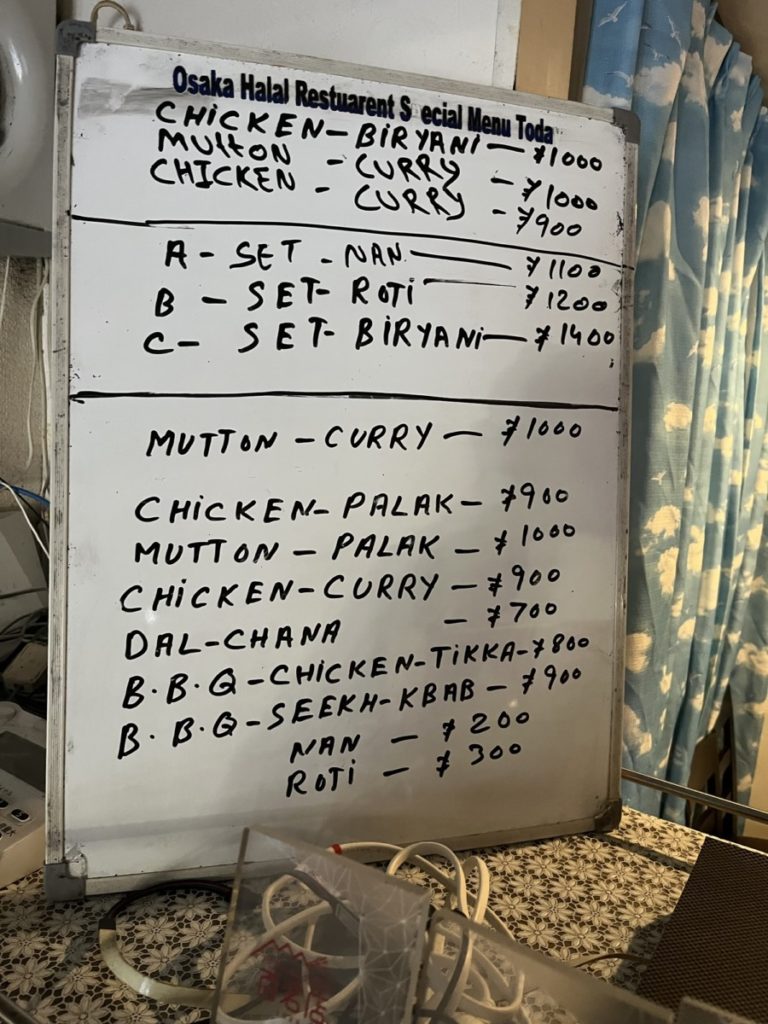 Osaka Halal Restuarent S ecial Menu Toda
CHiCKEN-BiRYANi-¥1000
MUttON - CURRY - ¥1000
CHICKEN - CURRY - ¥900
A - SET - NAN - ¥1100
B - SET- ROTi - ¥1200
C- SET-BiRYANi- ¥1400
MUTTON - CURRY - ¥1000
CHiCKEN-PALAK- ¥900
MUTTON - PALAK - ¥1000
CHiCKEN-CURRY - ¥900
DAL-CHANA - ¥700
B.B.Q-CHiCKEN-TiKKA-¥800
B.B.Q-SEEKH-KBAB - ¥900
NAN - ¥200
ROTi - ¥300